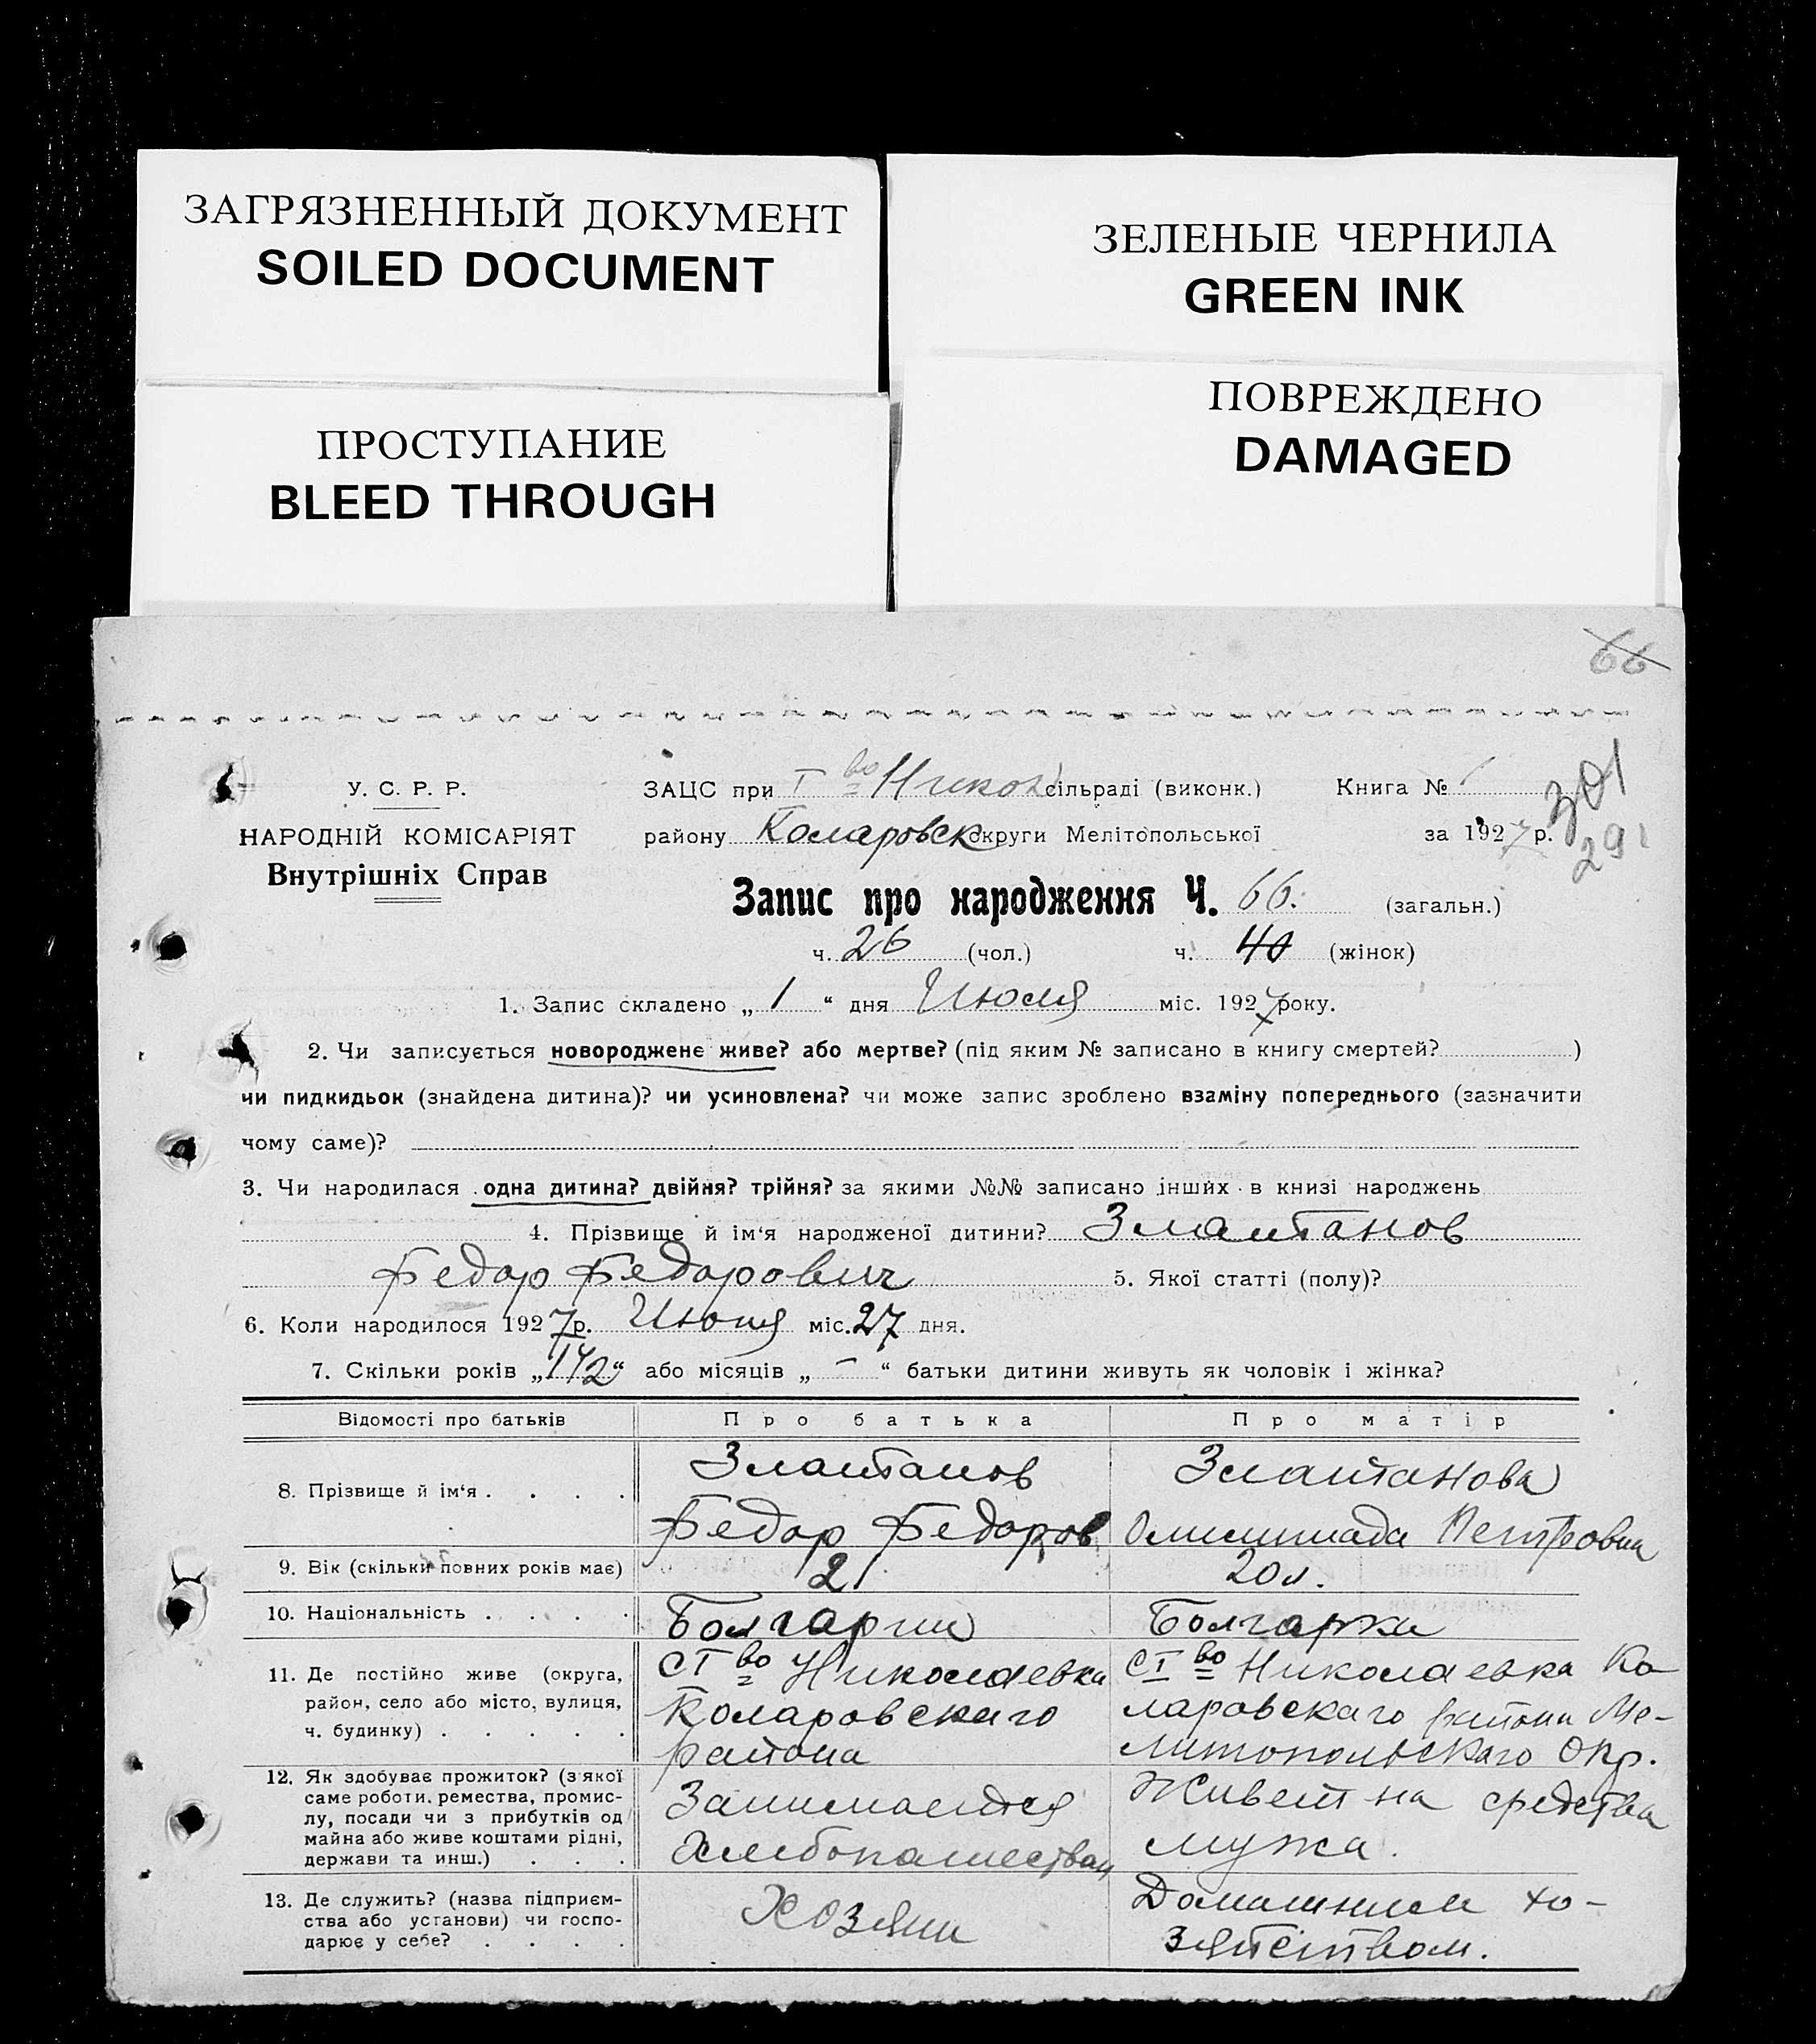 ЗАГРЯЗНЕННЫЙ ДОКУМЕНТ
SOILED DOCUMENT
ЗЕЛЕНЫЕ ЧЕРНИЛА
GREEN INK
ПРОСТУПАНИЕ
BLEED THROUGH
ПОВРЕЖДЕНО
DAMAGED
66
У. С. Р. Р.
НАРОДНІЙ КОМІСАРІЯТ
Внутрішніх Справ
ЗАЦС при I во Никол сільраді (виконк.) Книга № 1
301
району Коларовск округи Мелітопольської за 1927 р.
291
Запис про народження Ч. 66. (загальн.)
ч. 26 (чол.) ч. 40 (жінок)
1. Запис складено „ 1 “ дня Июля міс. 1927 року.
2. Чи записується новороджене живе? або мертве? (під яким № записано в книгу смертей? )
чи пидкидьок (знайдена дитина)? чи усиновлена? чи може запис зроблено взаміну попереднього (зазначити
чому саме)?
3. Чи народилася одна дитина? двійня? трійня? за якими №№ записано інших в книзі народжень
4. Прізвище й ім‘я народженої дитини? Златанов
Федор Федорович 5. Якої статті (полу)?
6. Коли народилося 1927 р. Июня міс. 27 дня.
7. Скільки років „1 1/2“ або місяців „ – “ батьки дитини живуть як чоловік і жінка?
Відомості про батьків Про батька Про матір
8. Прізвище й ім‘я . . . . Златанов Златанова
Федор Федоров Олимпиада Петровна
9. Вік (скільки повних років має) 21 20 л.
10. Національність . . . . Болгарин Болгарка
11. Де постійно живе (округа, район, село або місто, вулиця, ч. будинку) . . . . .
с I во Николаевка
Коларовскаго
района
с I во Николаевка Ко-
ларовскаго района Ме-
литопольскаго Окр.
12. Як здобуває прожиток? (з якої
саме роботи, ремества, промис-
лу, посади чи з прибутків од
майна або живе коштами рідні,
держави та инш.) . . .
Занимается
Хлебопашеством
Живет на средства
мужа.
13. Де служить? (назва підприєм-
ства або установи) чи госпо-
дарює у себе? . . . .
Хозяин
Домашним хо-
зяйством.